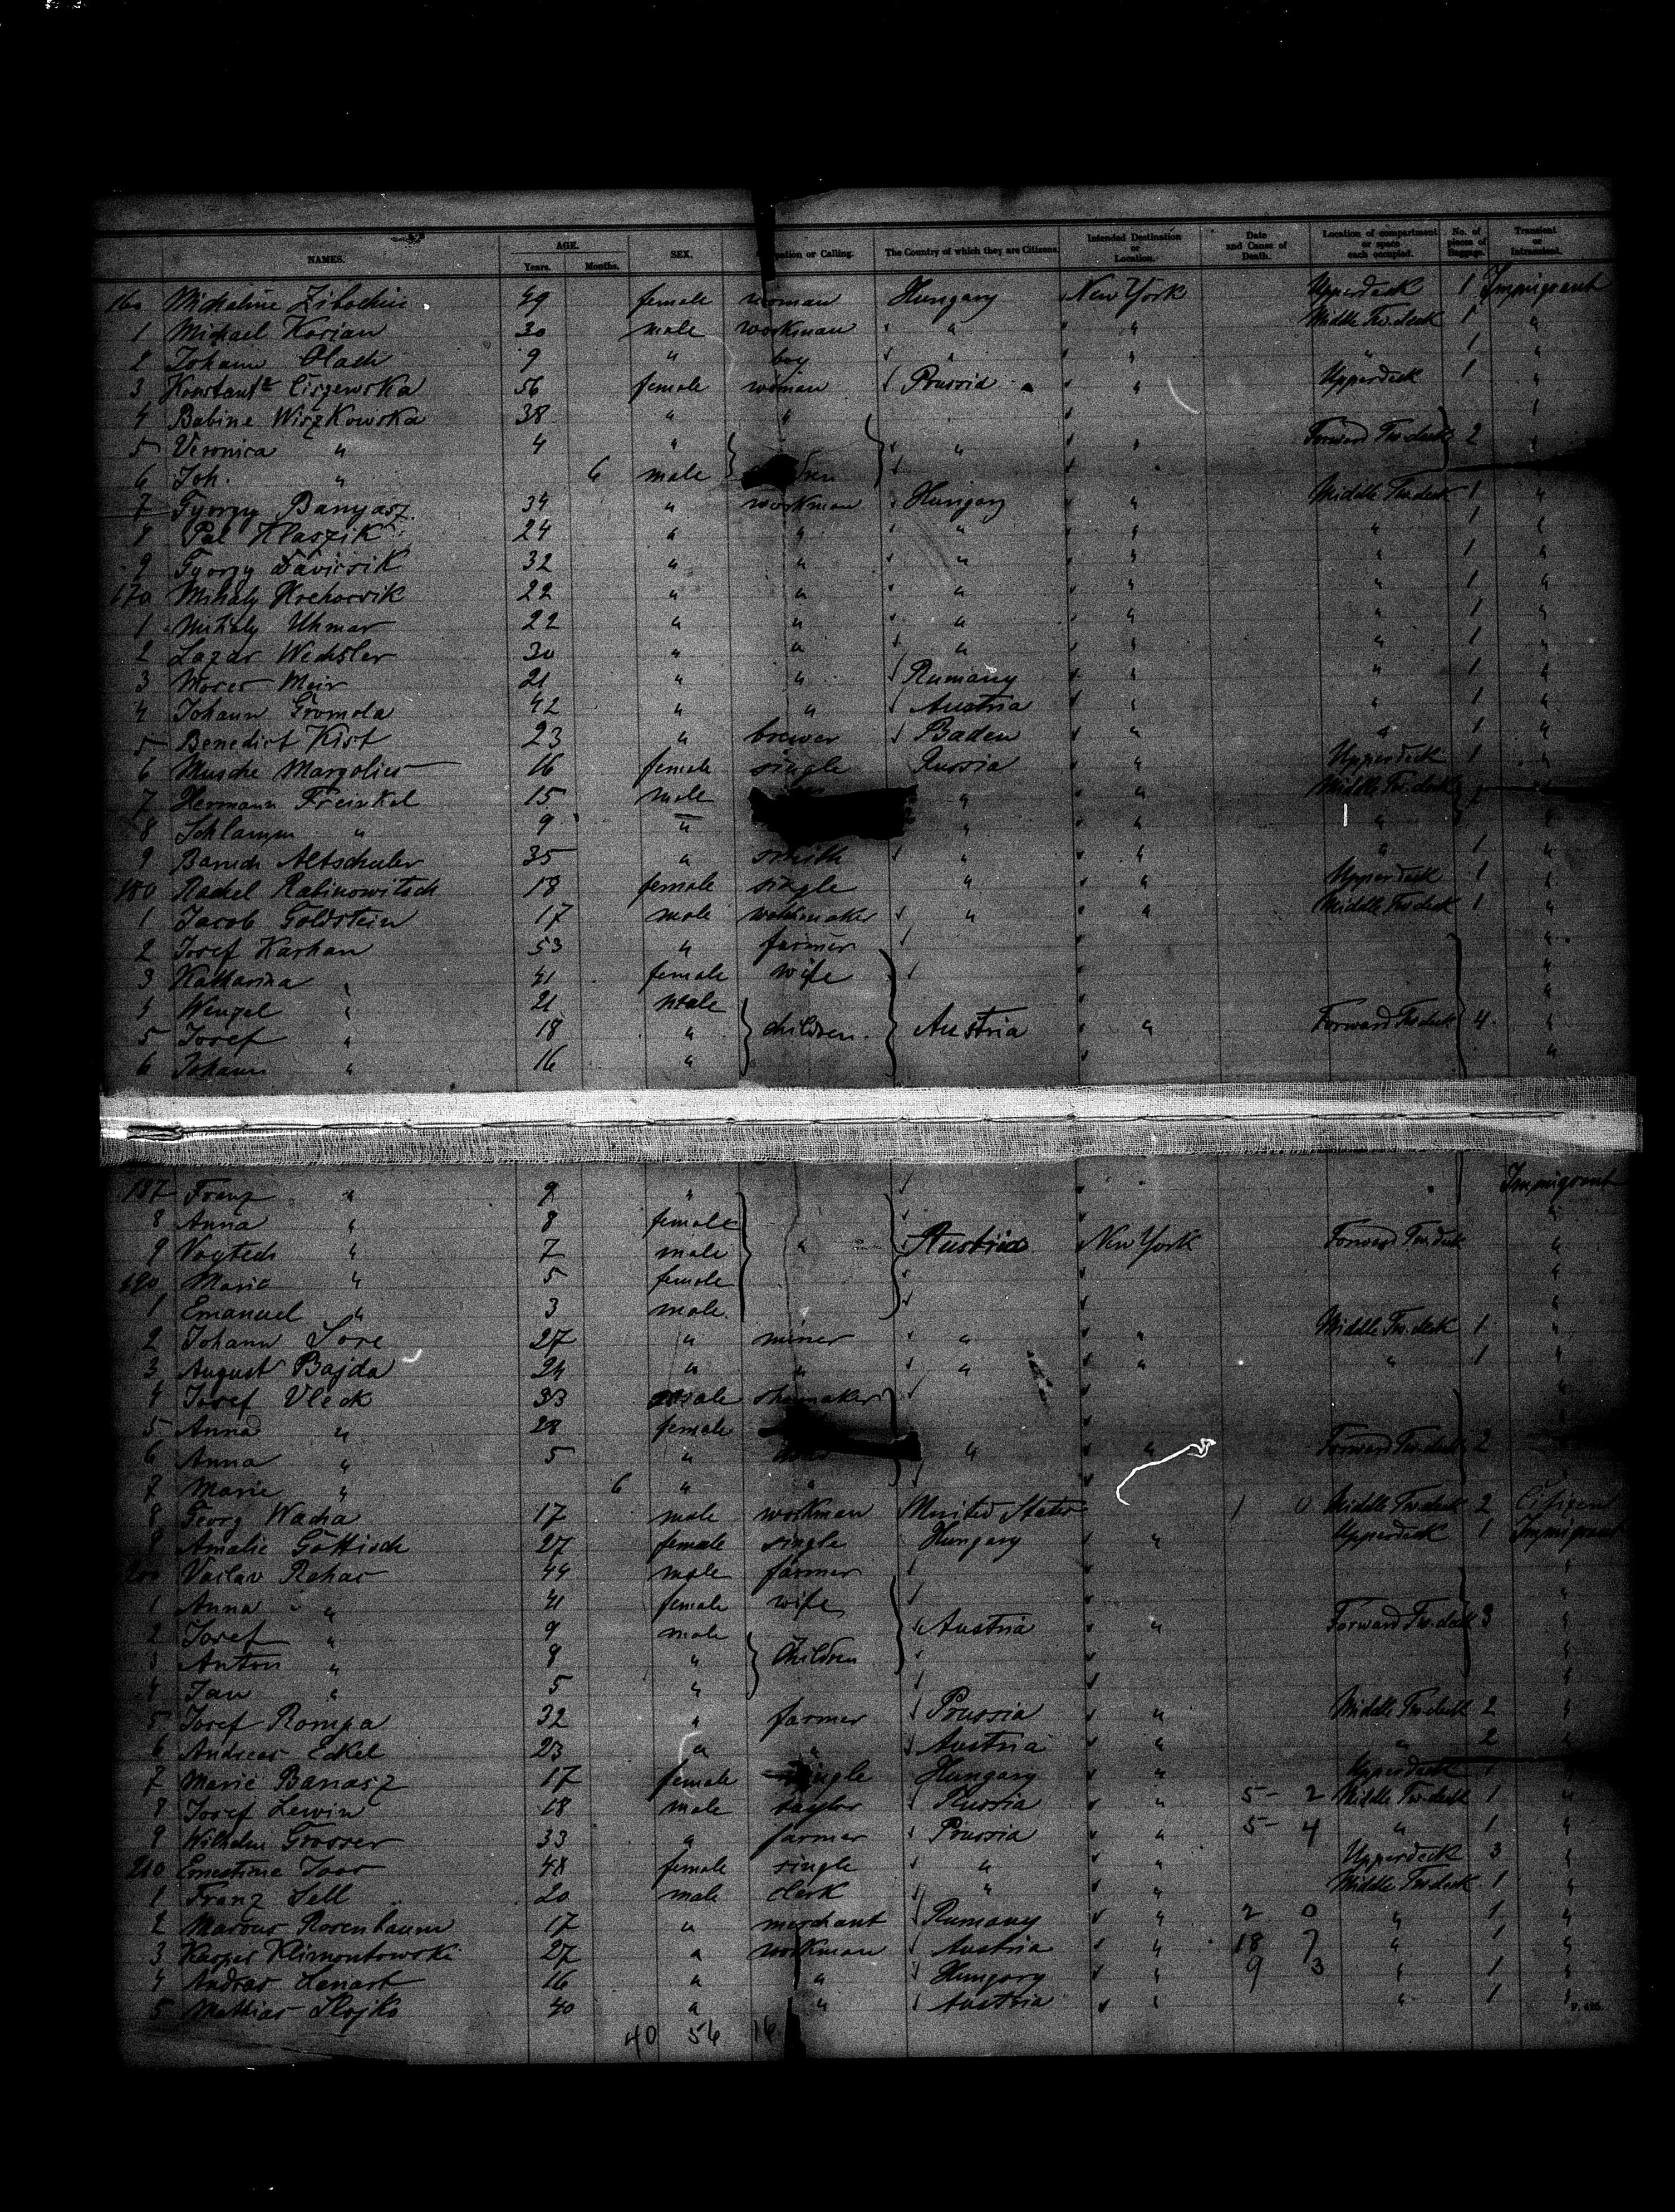 NAMES. AGE. Years. Months. SEX. pation or Calling. The Country of which they are Citizens. Intended Destination or Location. Date and Cause of Death. Location of compartment or space each occupied. No. of pieces of Baggage. Transient or Intransient.
160 Michaline 49 female woman Hungary New York Upperdeck 1 Immigrant
1 Michael Korian 30 male workman " " " Middle Tw.deck 1 "
2 Johann Olach 9 " boy " " " 1 "
3 Konstant Ciszewska 56 female woman Prussia " Upperdeck 1 "
4 Babine Wiszkowska 38 " "
5 Veronica " 4 " " " Forward Tw.deck 2 "
6 Joh. " 6 male
7 György Banyasz 34 " workman Hungary " Middle Tw.deck 1 "
8 Pal Klaszik 24 " " " " " 1 "
9 György Davicsik 32 " " " " " 1 "
170 Mihaly 22 " " " " " 1 "
1 Mihaly Uhmar 22 " " " " " 1 "
2 Lazar Wechsler 30 " " " " " 1 "
3 Moses Meir 21 " " Rumany " " 1 "
4 Johann Gromola 42 " " Austria " " 1 "
5 Benedict Kist 23 " brewer Baden " " 1 "
6 Musche Margolies 16 female single Russia " Upperdeck 1 "
7 Hermann Freinkel 15 male " " Middle Tw.deck
8 Schlamm " 9 " " " "
9 Baruch Altschuler 35 " smith " " " 1 "
180 Rachel Rabinowitsch 18 female single " " Upperdeck 1 "
1 Jacob Goldstein 17 male " " Middle Tw.deck 1 "
2 Josef Karhan 53 " farmer "
3 Katharina " 41 female wife "
4 Wenzel " 21 male "
5 Josef " 18 " children Austria " Forward Tw.deck 4 "
6 Johann " 16 " "
187 Franz " 9 " Immigrant
8 Anna " 8 female "
9 Voytech " 7 male " Austria New York Forward Tw.deck "
190 Marie " 5 female "
1 Emanuel " 3 male "
2 Johann Sore 27 " miner " " Middle Tw.deck 1 "
3 August Bajda 24 " " " " " 1 "
4 Josef Vleck 33 male shoemaker "
5 Anna " 28 female
6 Anna " 5 " " " Forward Tw.deck 2
7 Marie " 6 " "
8 Georg Wacha 17 male workman United States 1 0 Middle Tw.deck 2 Citizen
9 Amalie Göttisch 27 female single Hungary " Upperdeck 1 Immigrant
200 Vaclav Rehac 44 male farmer
1 Anna " 41 female wife "
2 Josef " 9 male Austria " Forward Tw.deck 3 "
3 Anton " 8 " Children "
4 Jan " 5 " "
5 Josef Rompa 32 " farmer Prussia " Middle Tw.deck 2 "
6 Andreas Eckel 23 " " Austria " " 2 "
7 Marie Banasz 17 female single Hungary " Upperdeck 1 "
8 Josef Lewin 18 male taylor Russia " 5 - 2 Middle Tw.deck 1 "
9 Wilhelm Grosser 33 " farmer Prussia " 5 - 4 " 1 "
210 Ernestine 48 female single " " Upperdeck 3 "
1 Franz Sell 20 male clerk " " Middle Tw.deck 1 "
2 Marcus Rosenbaum 17 " merchant Rumany " 2 0 " 1 "
3 Kasper Klimontowski 27 " workman Austria " 18 7 " 1 "
4 Andras Lenart 16 " " Hungary " 9 3 " 1 "
5 Mathias Slojko 40 " " Austria " " 1
40 56 16